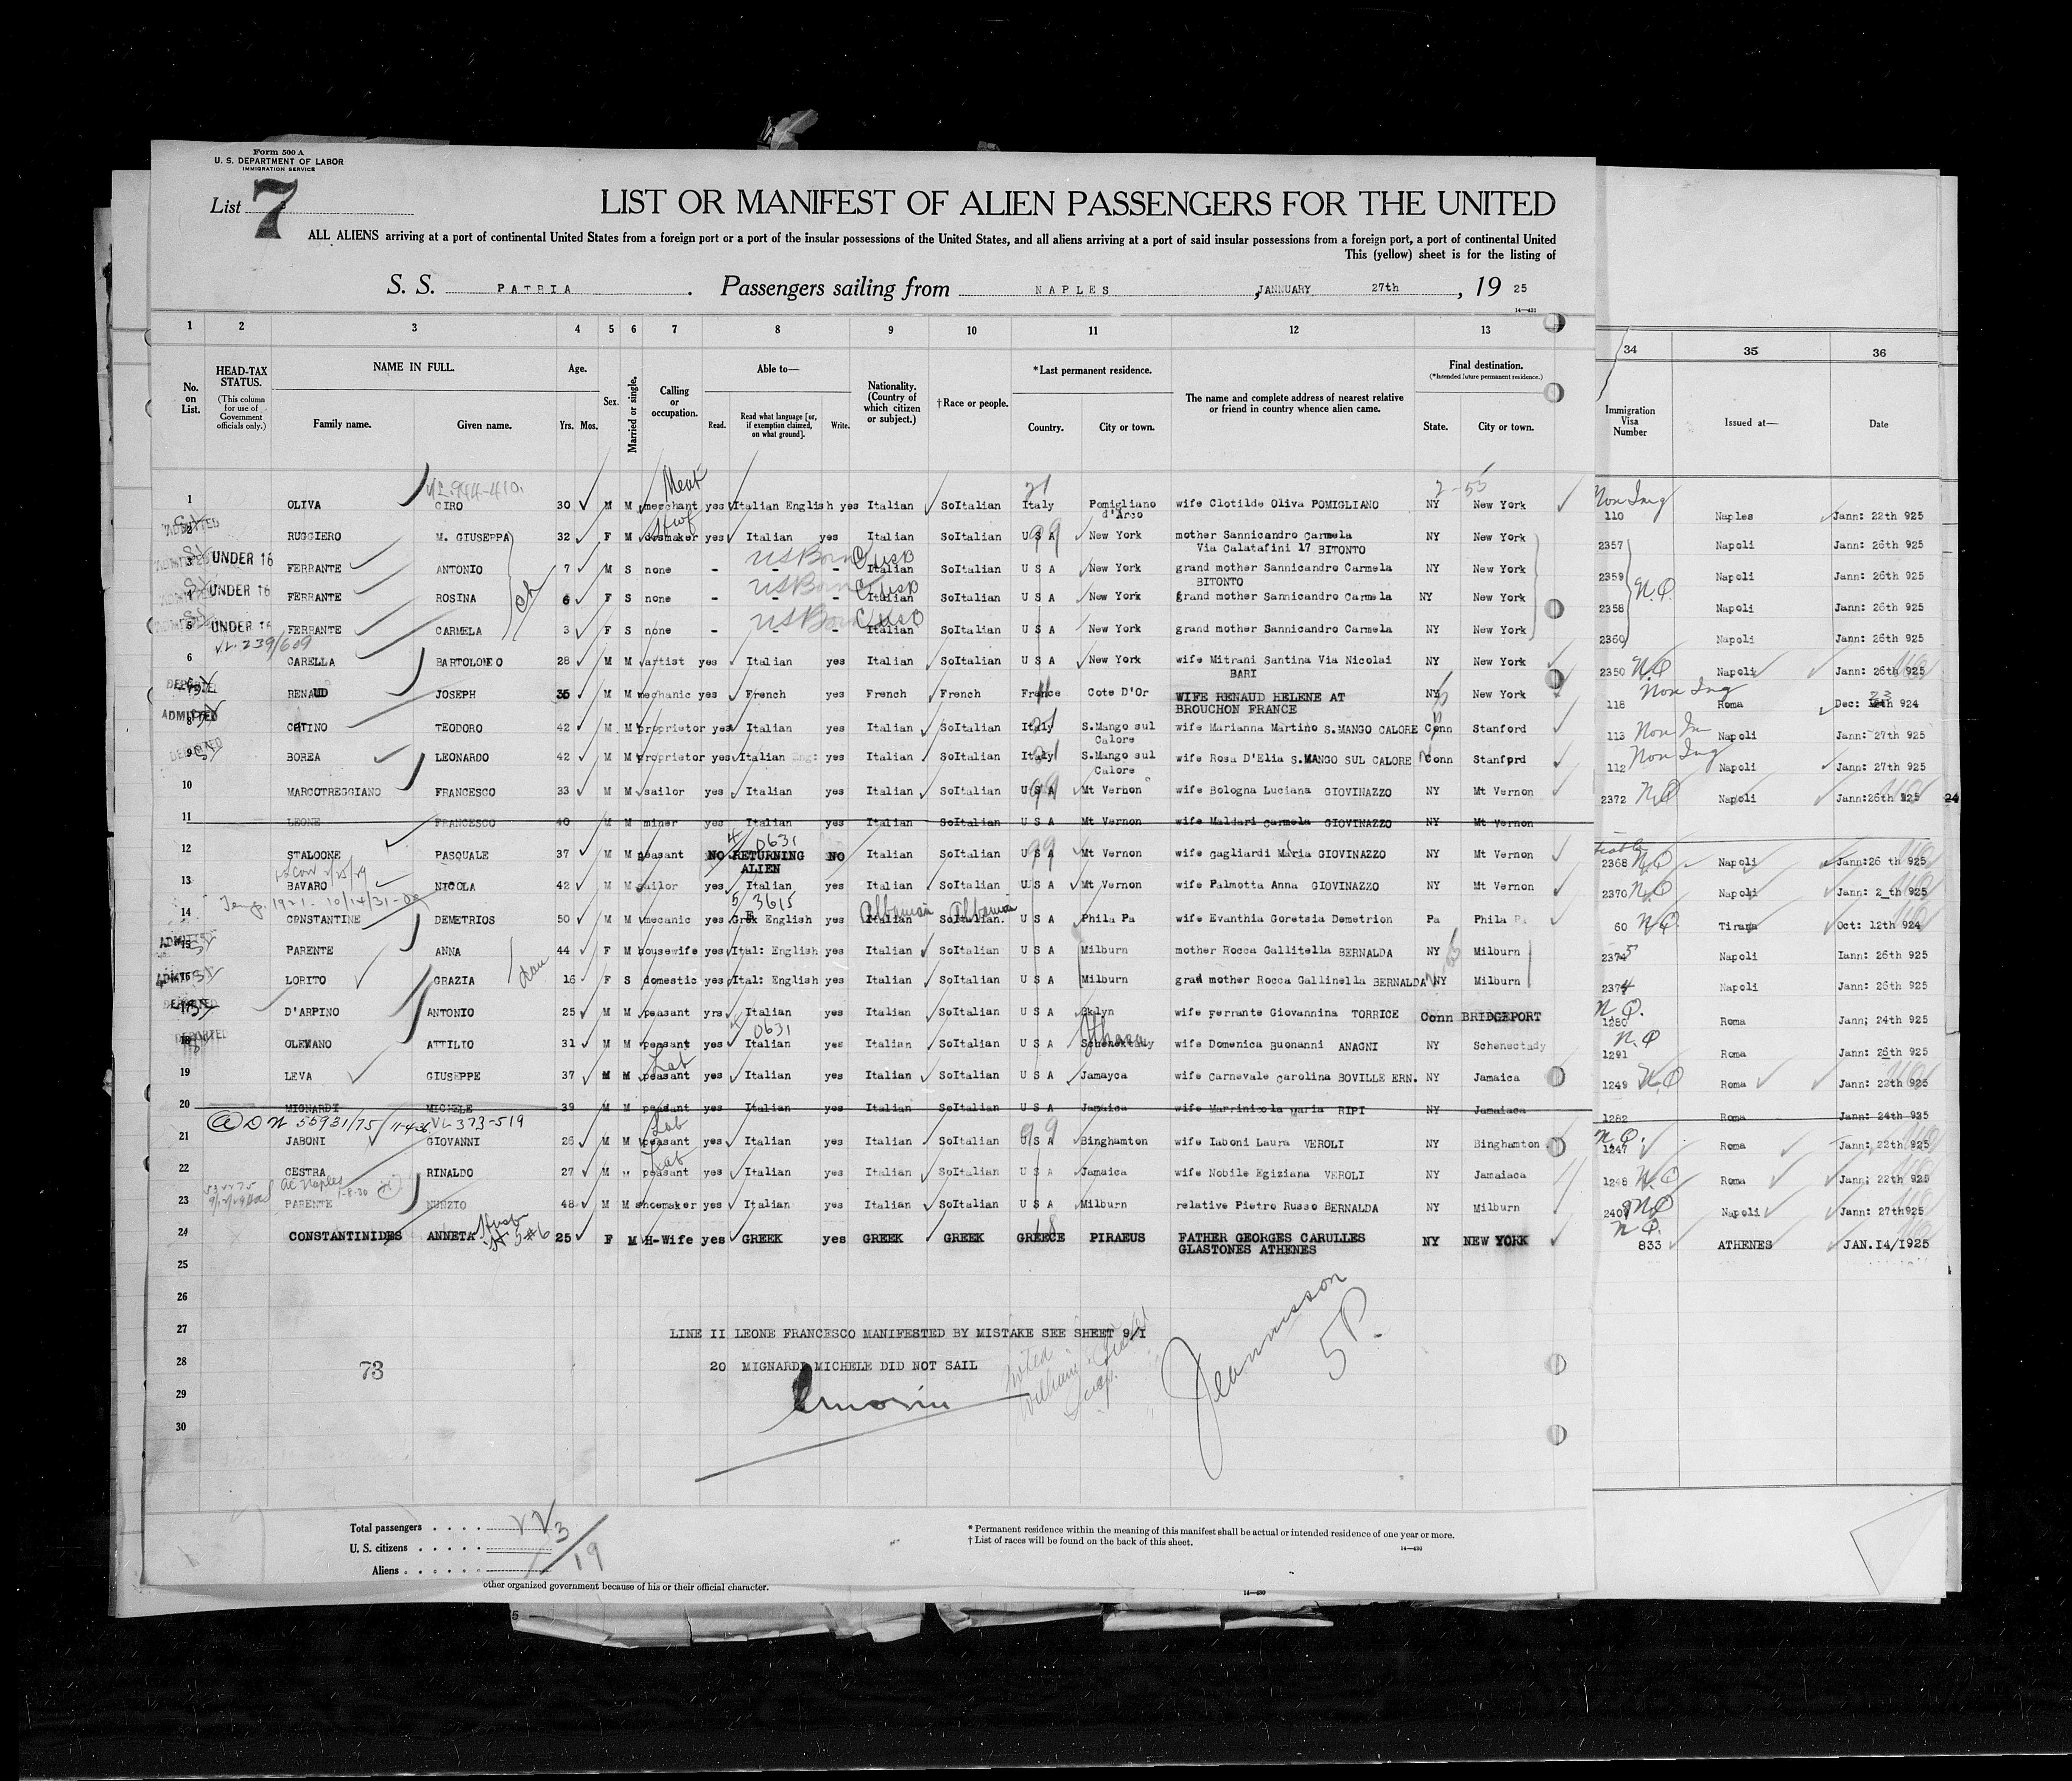 Form 500 A
U. S. DEPARTMENT OF LABOR
IMMIGRATION SERVICE
List 7
LIST OR MANIFEST OF ALIEN PASSENGERS FOR THE UNITED
ALL ALIENS arriving at a port of continental United States from a foreign port or a port of the insular possessions of the United States, and all aliens arriving at a port of said insular possessions from a foreign port, a port of continental United
This (yellow) sheet is for the listing of
S. S. PATRIA. Passengers sailing from NAPLES, JANNUARY 27th, 19 25
14—421
1 2 3 4 5 6 7 8 9 10 11 12 13 34 35 36
No. on List.
HEAD-TAX STATUS.
(This column for use of Government officials only.)
NAME IN FULL.
Family name. Given name.
Age.
Yrs. Mos.
Sex.
Married or single.
Calling or occupation.
Able to—
Read. Read what language [or, if exemption claimed, on what ground]. Write.
Nationality. (Country of which citizen or subject.)
†Race or people.
*Last permanent residence.
Country. City or town.
The name and complete address of nearest relative or friend in country whence alien came.
Final destination.
(*Intended future permanent residence.)
State. City or town.
Immigration Visa Number
Issued at—
Date
21 2-55
1 OLIVA CIRO 30 M M merchant yes Italian English yes Italian SoItalian Italy Pomigliano d'Arco wife Clotilde Oliva POMIGLIANO NY New York Non Img 110 Naples Jann: 22th 925
2 RUGGIERO M. GIUSEPPA 32 F M yes Italian yes Italian SoItalian U S A New York mother Sannicandro Carmela NY New York 2357 Napoli Jann: 26th 925
Via Calatafini 17 BITONTO
3 UNDER 16 FERRANTE ANTONIO 7 M S none - US Born - Italian USB SoItalian U S A New York grand mother Sannicandro Carmela NY New York 2359 Napoli Jann: 26th 925
BITONTO
4 UNDER 16 FERRANTE ROSINA 6 F S none - US Born - Italian USB SoItalian U S A New York grand mother Sannicandro Carmela NY New York 2358 N.Q. Napoli Jann: 26th 925
5 UNDER 16 FERRANTE CARMELA 3 F S none - US Born - Italian SoItalian U S A New York grand mother Sannicandro Carmela NY New York 2360 Napoli Jann: 26th 925
6 CARELLA BARTOLOMEO 28 M M artist yes Italian yes Italian SoItalian U S A New York wife Mitrani Santina Via Nicolai NY New York 2350 NQ Napoli Jann: 26th 925
BARI
RENAUD JOSEPH 35 M M mechanic yes French yes French French France Cote D'Or WIFE RENAUD HELENE AT NY New York Non Img 118 Roma Dec: 924
BROUCHON FRANCE
ADMITTED
8 TEODORO 42 M M proprietor yes Italian yes Italian SoItalian Italy S.Mango sul Calore wife Marianna Martino S.MANGO CALORE Conn Stanford 113 Napoli Jann: 27th 925
9 BOREA LEONARDO 42 M M proprietor yes Italian Eng: yes Italian SoItalian Italy S.Mango sul Calore wife Rosa D'Elia S.MANGO SUL CALORE Conn Stanford 112 Non Img Napoli Jann: 27th 925
10 MARCOTREGGIANO FRANCESCO 33 M M sailor yes Italian yes Italian SoItalian U S A Mt Vernon wife Bologna Luciana GIOVINAZZO NY Mt Vernon 2372 N.Q Napoli Jann:26th 925 24
11 LEONE FRANCESCO 40 M M miner yes Italian yes Italian SoItalian U S A Mt Vernon wife Maldari Carmela GIOVINAZZO NY Mt Vernon
4/0631
12 STALOONE PASQUALE 37 M M peasant NO RETURNING ALIEN NO Italian SoItalian U S A Mt Vernon wife Gagliardi Maria GIOVINAZZO NY Mt Vernon 2368 NQ Napoli Jann:26 th 925
13 BAVARO NICOLA 42 M M sailor yes Italian yes Italian SoItalian U.S A Mt Vernon wife Palmotta Anna GIOVINAZZO NY Mt Vernon 2370 NQ Napoli Jann: 2_th 925
5/3615
14 CONSTANTINE DEMETRIOS 50 M M mecanic yes Grek English yes Italian Albanian SoItalian Albanian U S A Phila Pa wife Evanthia Goretsia Demetrion Pa Phila Pa 60 N.Q. Tirana Oct: 12th 924
15 PARENTE ANNA 44 F M housewife yes Ital: English yes Italian SoItalian U S A Milburn mother Rocca Gallitella BERNALDA NY Milburn 2375 Napoli Iann: 26th 925
16 LORITO GRAZIA 16 F S domestic yes Ital: English yes Italian SoItalian U S A Milburn grand mother Rocca Gallinella BERNALDA NY Milburn 2374 Napoli Jann: 26th 925
D'ARPINO ANTONIO 25 M M peasant yrs Italian yes Italian SoItalian U S A Bklyn wife Ferrante Giovannina TORRICE Conn BRIDGEPORT N.Q. 1280 Roma Jann; 24th 925
4/0631
18 OLEVANO ATTILIO 31 M M peasant yes Italian yes Italian SoItalian U S A Schenectady wife Domenica Buonanni ANAGNI NY Schenectady N.Q 1291 Roma Jann: 26th 925
19 LEVA GIUSEPPE 37 M M peasant Lab yes Italian yes Italian SoItalian U S A Jamayca wife Carnevale Carolina BOVILLE ERN. NY Jamaica 1249 N.Q Roma Jann: 22th 925
20 MIGNARDI MICHELE 39 M M peasant yes Italian yes Italian SoItalian U S A Jamaica wife Marrinicola Maria RIPI NY Jamaiaca 1282 Roma Jann: 24th 925
VL 373-519
21 JABONI GIOVANNI 26 M M peasant Lab yes Italian yes Italian SoItalian U S A Binghamton wife Iaboni Laura VEROLI NY Binghamton N.Q. 1247 Roma Jann; 22th 925
22 CESTRA RINALDO 27 M M peasant Lab yes Italian yes Italian SoItalian U S A Jamaica wife Nobile Egiziana VEROLI NY Jamaiaca 1248 N.Q Roma Jann; 22th 925
23 PARENTE NUNZIO 48 M M shoemaker yes Italian yes Italian SoItalian U S A Milburn relative Pietro Russo BERNALDA NY Milburn NQ Napoli Jann: 27th925
24 CONSTANTINIDES ANNETA 25 F M H-Wife yes GREEK yes GREEK GREEK GREECE PIRAEUS FATHER GEORGES CARULLES NY NEW YORK N.Q. 833 ATHENES JAN.I4/I925
GLASTONES ATHENES
25
26
27 LINE II LEONE FRANCESCO MANIFESTED BY MISTAKE SEE SHEET 9/I
28 73 20 MIGNARDI MICHELE DID NOT SAIL
29
30
Total passengers
U. S. citizens
Aliens 19
* Permanent residence within the meaning of this manifest shall be actual or intended residence of one year or more.
† List of races will be found on the back of this sheet.
14—430
other organized government because of his or their official character.
14—430